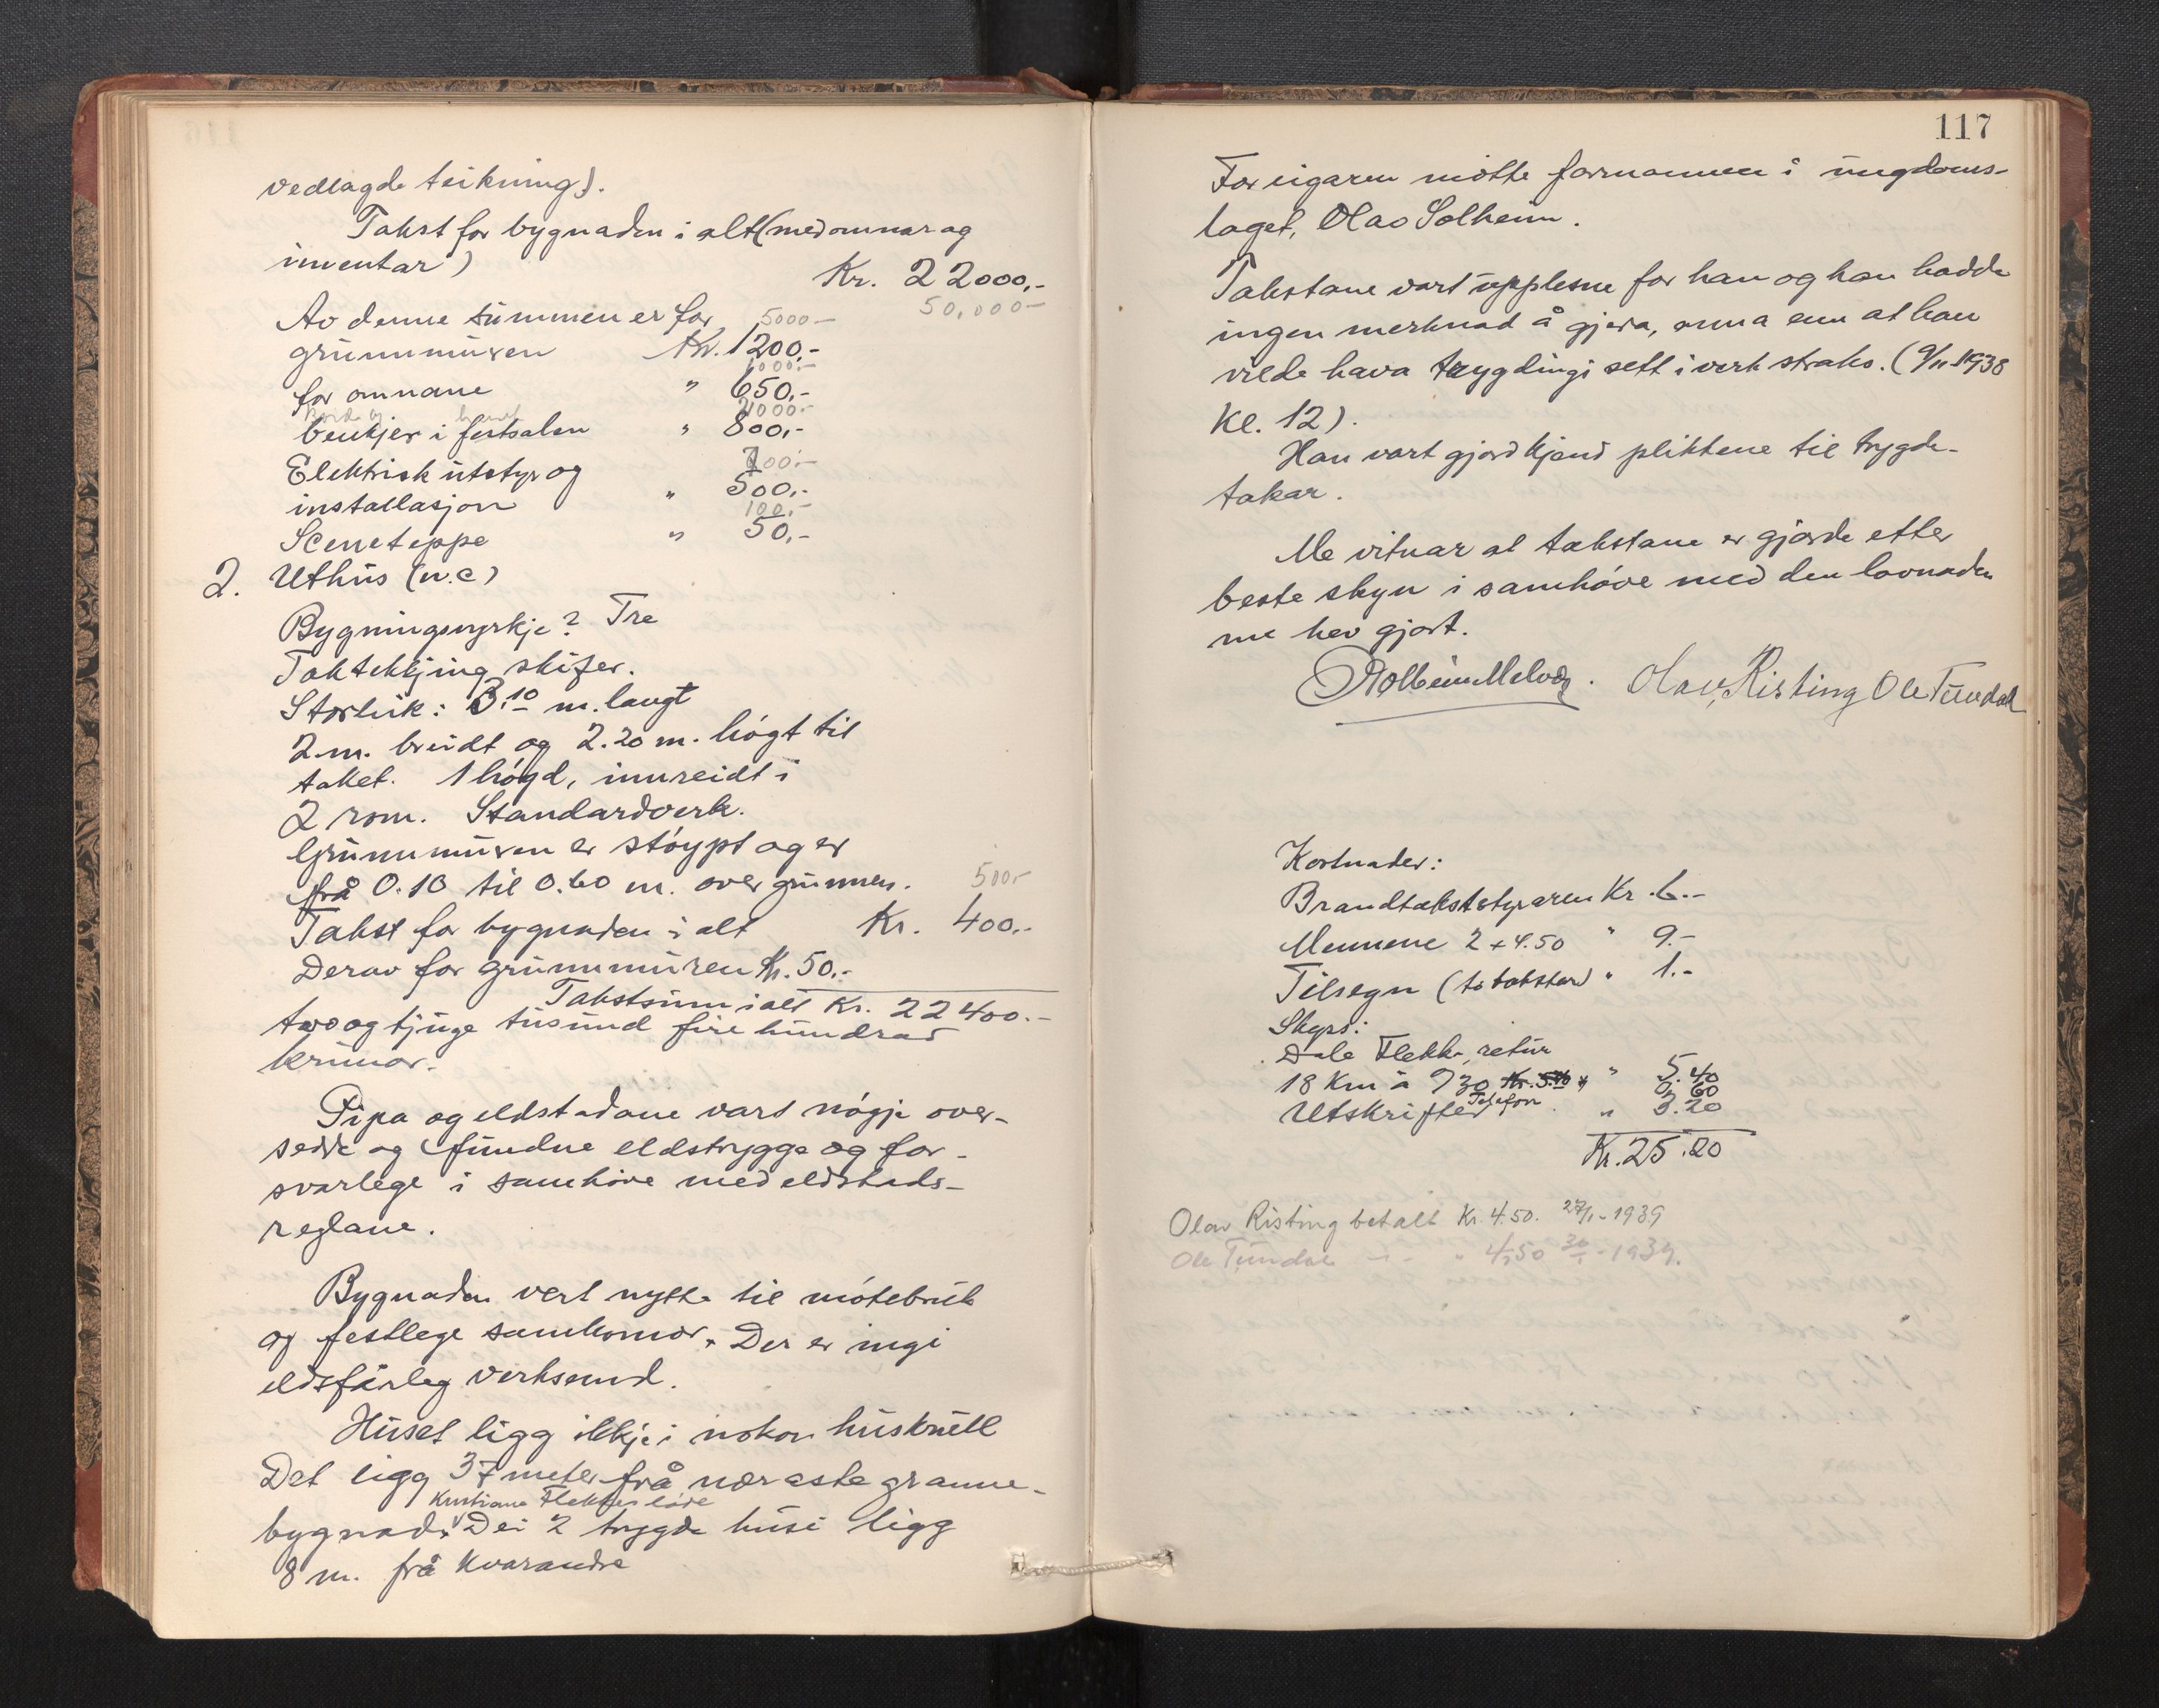 vedlagde teikning).
Takst for bygnaden i alt (med omnar og
inventar)
Kr. 22000,-
50,000-
Av denne summen er for
5000-
grunnmuren Kr. 1200,-
1000.-
for omnane " 650,-
4000.-
benkjer i festsalen " 800,-
Elektrisk utstyr og
installasjon " 500,-
100.-
Sceneteppe " 50,-
2. Uthus (w.c)
Bygningsvyrkje? Tre
Taktekkjing skifer.
Storleik: 3.10 m. langt
2 m. breidt og 2.20 m. høgt til
taket. 1 høgd, innreidt i
2 rom. Standardverk.
Grunnmuren er støypt og er
frå 0.10 til 0.60 m. over grunnen.
500-
Takst for bygnaden i alt Kr. 400.-
Derav for grunnmuren Kr. 50.-
Takstsum i alt Kr. 22400.-
two og tjuge tusund fire hundrad
krunor.
Pipa og eldstadane vart nøgje over-
sedde og fundne eldstrygge og for-
svarlege i samhøve med eldstads-
reglane.
Bygnaden vert nytta til møtebruk
og festlege samkomor. Der er ingi
eldsfårleg verksemd.
Huset ligg ikkje i nokon husknull
Det ligg 37 meter frå næraste granne-
Kristiane Flekkes løde
bygnad. Dei 2 trygda husi ligg
8 m. frå kvarandre
117
For eigaren møtte formannen i ungdoms-
laget, Olav Solheim.
Takstane vart upplesne for han og han hadde
ingen merknad å gjera, anna enn at han
vilde hava trygdingi sett i verk straks. (9/11 1938
Kl. 12).
Han vart gjord kjend pliktene til trygde-
takar.
Me vitnar at takstane er gjorde etter
beste skyn i samhøve med den lovnaden
me hev gjort.
Olav Risting Ole Tundal
Kostnader:
Brandtakststyraren Kr. 6.-
Mennene 2 x 4.50 " 9.-
Tilsegn (to takstar) " 1.-
Skyss:
Dale Flekke, retur
18 Km à 0.30 " 5.40
Telefon 0.60
Utskrifter " 3.20
Kr. 25.20
Olav Risting betalt Kr. 4.50. 27/1-1939
Ole Tundal -"- " 4,50 30/1-1939.